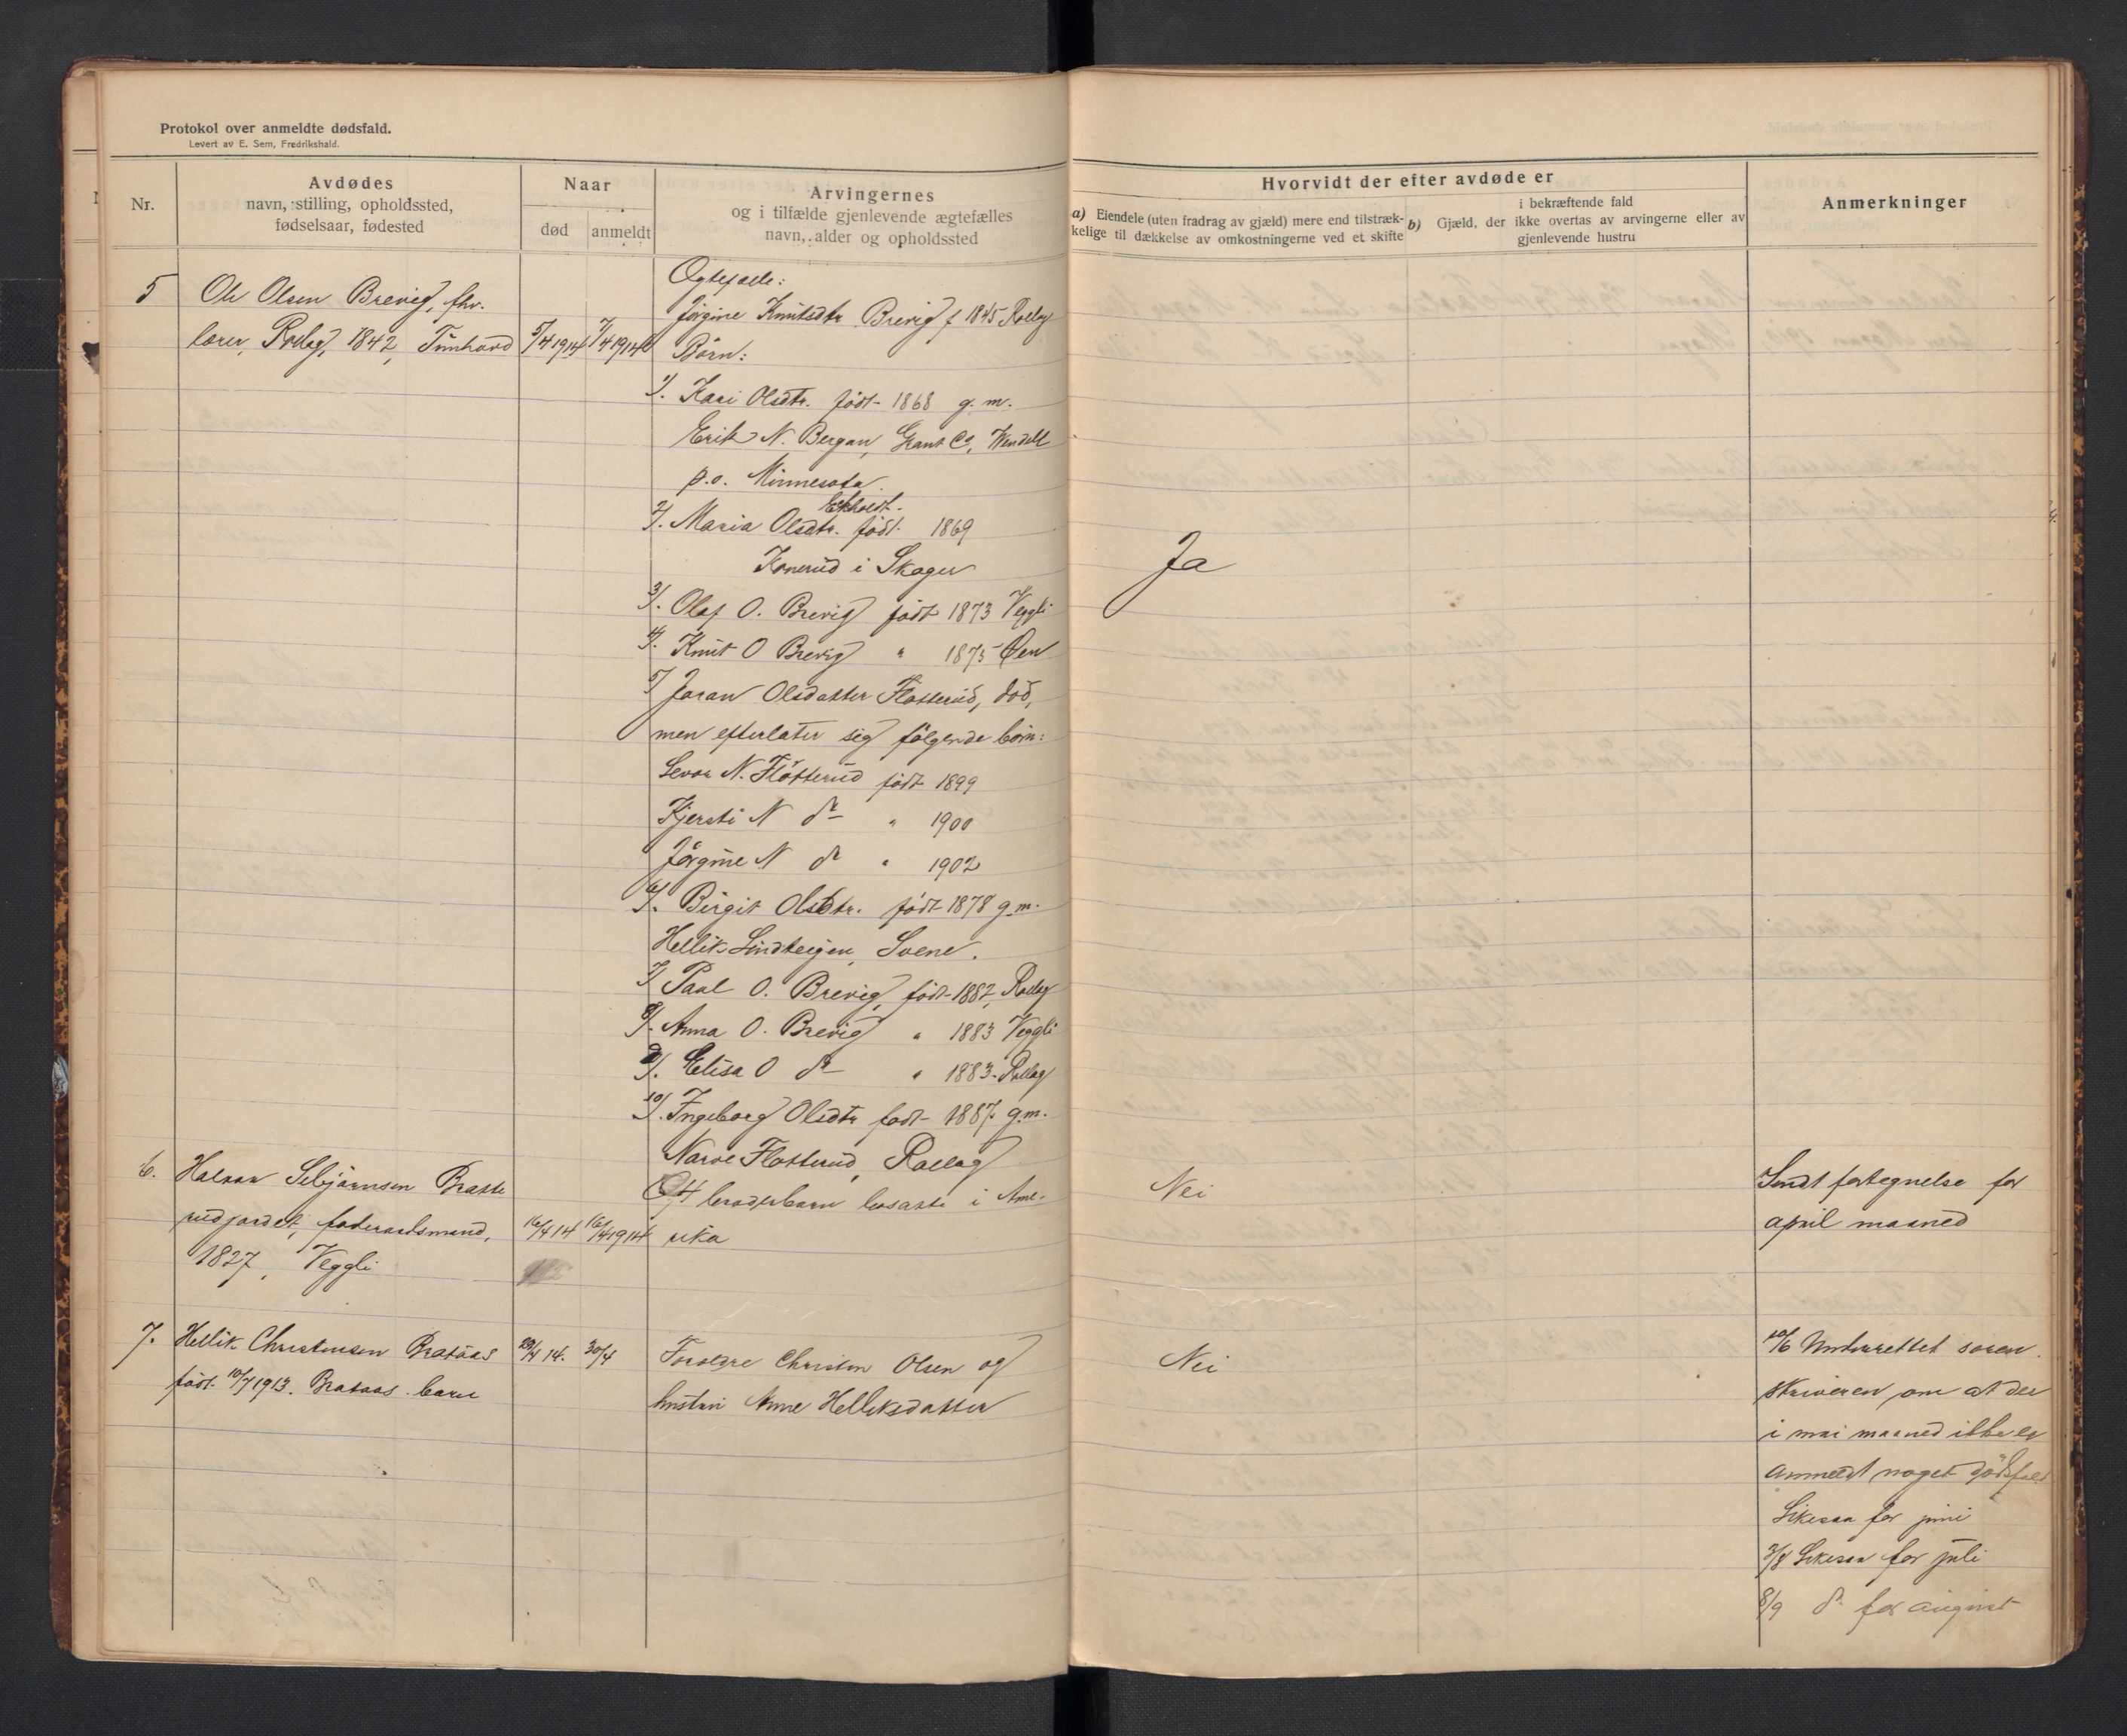 Protokol over anmeldte dødsfald.
Levert av E. Sem, Fredrikshald.
Nr.
Avdødes
navn, stilling, opholdssted,
fødselsaar, fødested
Naar
død
anmeldt
Arvingernes
og i tilfælde gjenlevende ægtefælles
navn, alder og opholdssted
Hvorvidt der efter avdøde er
a) Eiendele (uten fradrag av gjæld) mere end tilstræk-
kelige til dækkelse av omkostningerne ved et skifte
i bekræftende fald
b) Gjæld, der ikke overtas av arvingerne eller av
gjenlevende hustru
Anmerkninger
5
Ole Olsen Brevig, fhv.
lærer, Rollag, 1842,
5/4 1914
7/4 1914
Ja
Ægtefælle:
Jørgine Knutsdtr Brevig f 1845 Rollag
Børn:
1/. Kari Olsdtr. født 1868 g. m.
Erik N. Bergan, Grant Co, Wendell
p.o. Minnesota.
Ekholdt
2/. Maria Olsdtr. født 1869
Konerud i Skoger
3/. Olaf O. Brevig født 1873 Veggli
4/. Knut O Brevig " 1875
5/ Joran Olsdatter Fløtterud, død,
men efterlater sig følgende børn:
Sevor N. Fløtterud født 1899
Kjersti N do " 1900
Jørgine N do " 1902
6/. Birgit Olsdtr. født 1878 g.m.
Hellik Lindteigen, Svene.
7/ Paal O. Brevig, født 1882, Rollag
8/. Anna O. Brevig " 1883 Veggli
9/. Elisa O do " 1883 Rollag
10/. Ingeborg Olsdtr født 1887 g.m.
Narve Fløtterud, Rollag
6.
Halvor Sebjørnsen Bratte
rudjordet, føderaadsmand,
1827, Veggli
16/4 14
16/4 1914
4 broderbarn bosatte i Ame-
rika
Nei
Sendt fortegnelse for
april maaned
7.
Hellik Christensen Brataas
født 10/7 1913. Brataas. barn
29/4 14.
30/4
Forældre Christen Olsen og
hustru Anne Helliksdatter
Nei
10/6 Underrettet soren
skriveren om at der
i mai maaned ikke er
anmeldt noget dødsfald
Likesaa for juni
3/8 Likesaa for juli
8/9 do for august